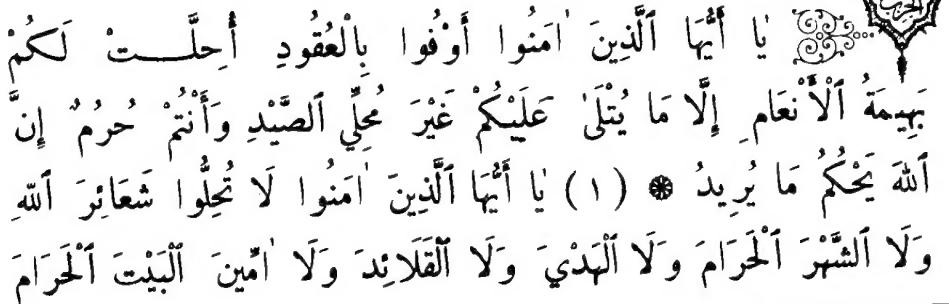 يٰا أَيُّهَا ٱلَّذِينَ اٰمَنُوا أَوْفُوا بِالْعُقُودِ أُحِلَّـــتْ لَكُمْ
بَهِيمَةُ ٱلْأَنْعَامِ إِلَّا مَا يُتْلَىٰ عَلَيْكُمْ غَيْرَ مُحِلِّي ٱلصَّيْدِ وَأَنْتُمْ حُرُمٌ إِنَّ
ٱللّٰهَ يَحْكُمُ مَا يُرِيدُ ❁ (١) يٰا أَيُّهَا ٱلَّذِينَ اٰمَنُوا لَا تُحِلُّوا شَعَائِرَ ٱللّٰهِ
وَلَا ٱلشَّهْرَ ٱلْحَرَامَ وَلَا ٱلْهَدْيَ وَلَا ٱلْقَلَائِدَ وَلَا اٰمِّينَ ٱلْبَيْتَ ٱلْحَرَامَ